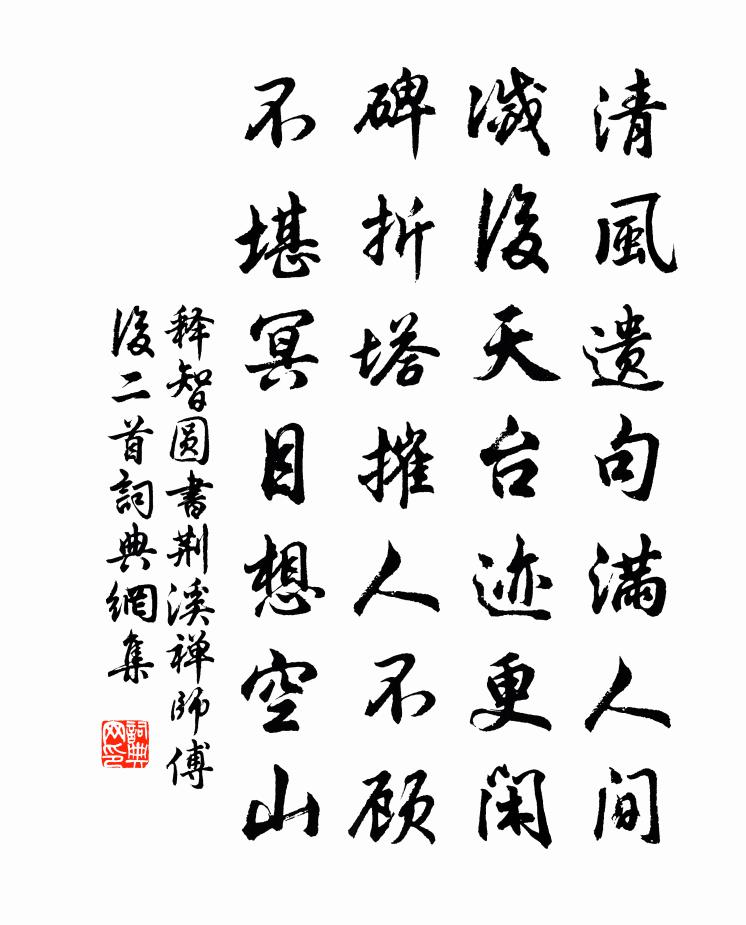 清風遺句满人间
滅後天台迹更闲
碑折塔摧人不顾
不堪冥目想空山
释智圆書荆溪禅師傅
後二首詞典網集
詞典網印